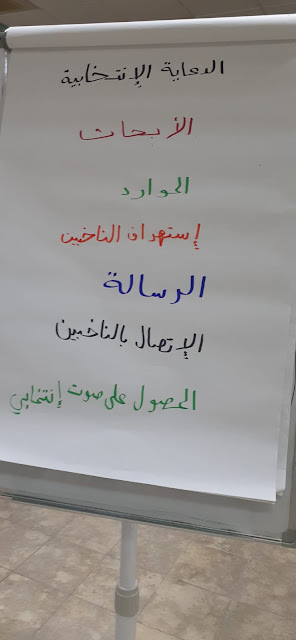 الدعاية الإنتخابية
الأبحاث
الموارد
إستهداف الناخبين
الرسالة
الإتصال بالناخبين
الحصول على صوت إنتخابي